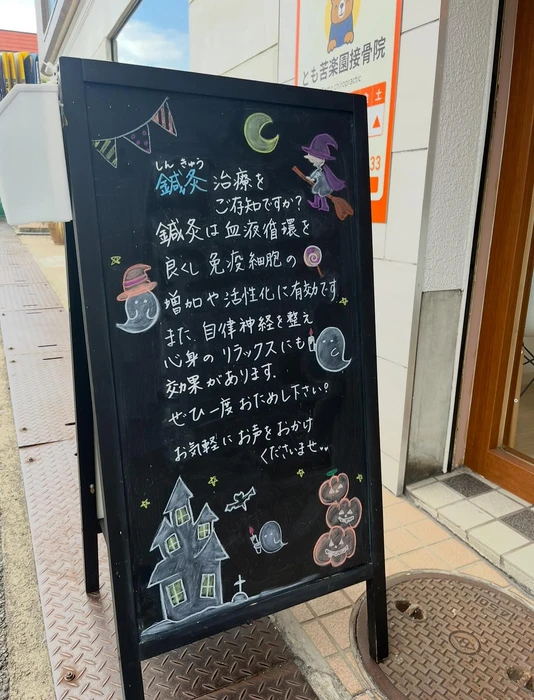 とも苦楽園接骨院
土
▲
33
しんきゅう
鍼灸 治療を
ご存知ですか?
鍼灸は血液循環を
良くし 免疫細胞の
増加や活性化に有効です
また、自律神経を整え
心身の リラックスにも
効果があります.
ぜひ一度 おためし下さい。
お気軽に お声をおかけ
くださいませ